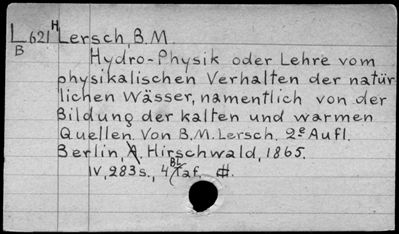 L 621 H Lersch, B.M.
B
Hydro-Physik oder Lehre vom
physikalischen Verhalten der natür
lichen Wässer, namentlich von der
Bildung der kalten und warmen
Quellen. Von B.M. Lersch. 2e Aufl.
Berlin, A. Hirschwald, 1865.
IV, 283 s., 4 Bl. Taf. 8.